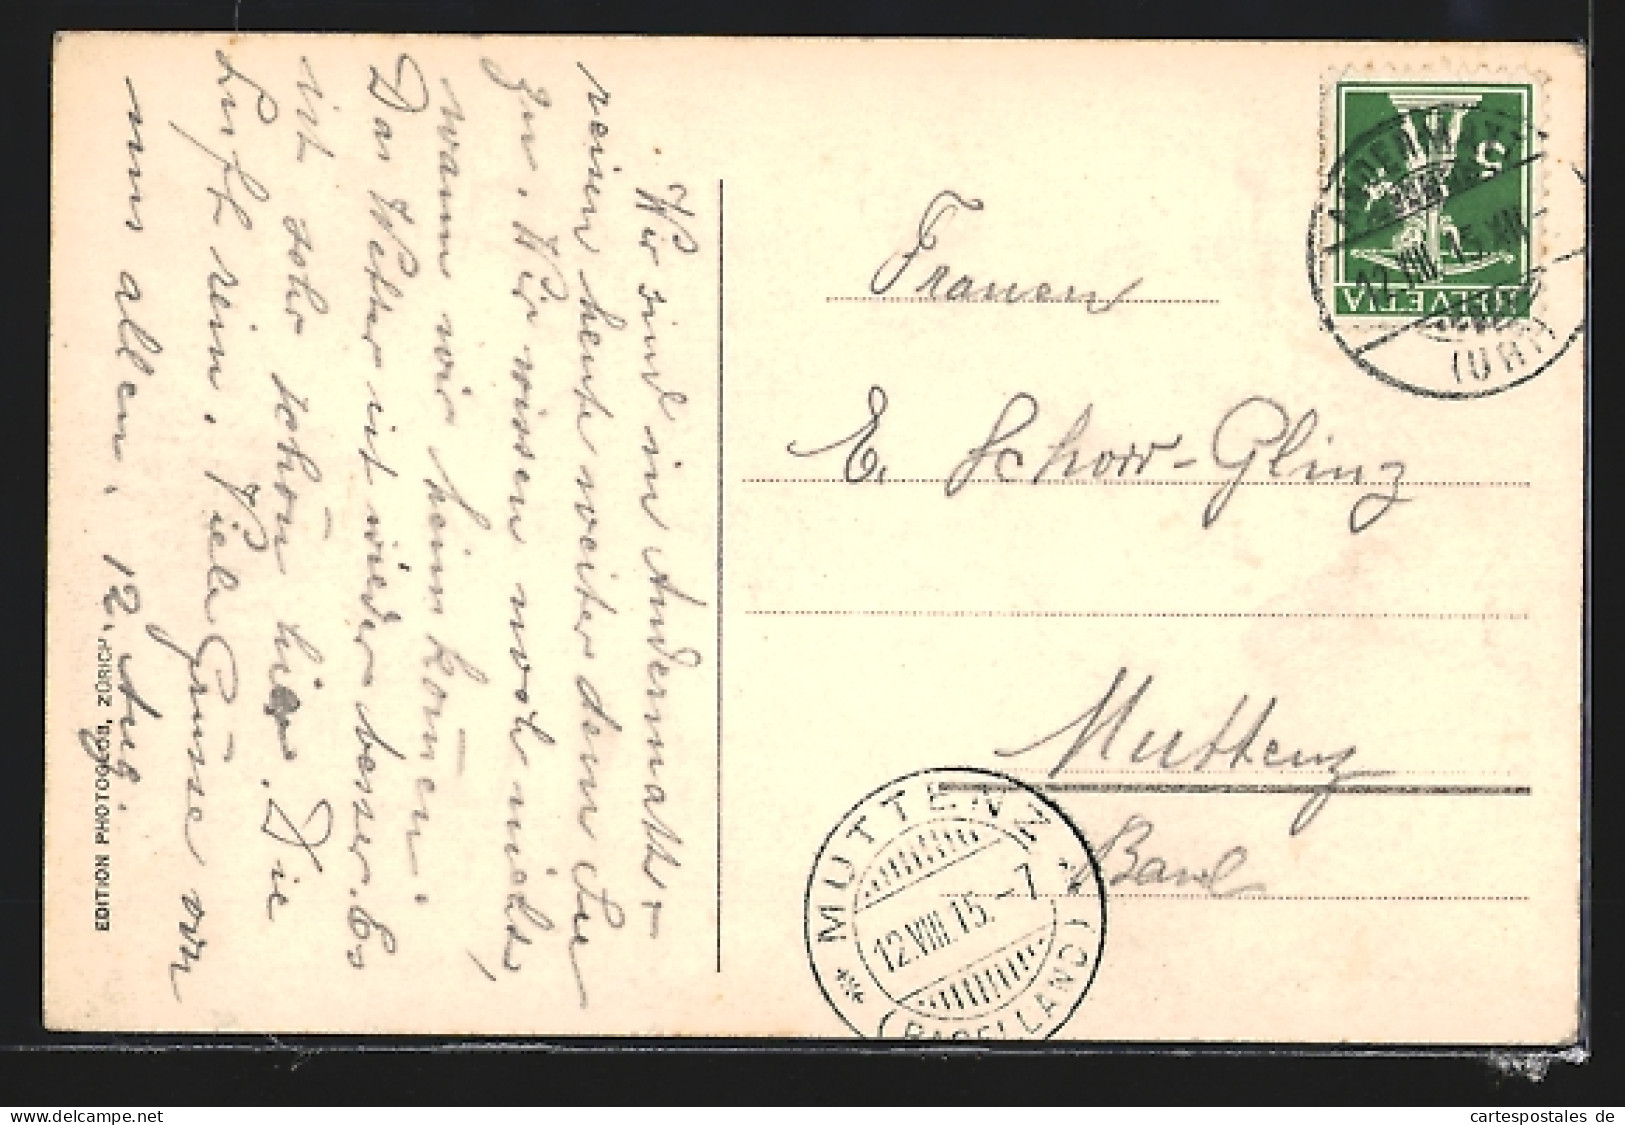 Wir sind in Andermatt +
reisen heute weiter dem See
zu. Wir wissen noch nicht,
wann wir heim können.
Das Wetter ist wieder besser. Es
ist sehr schön hier. Die
Luft rein. Viele Grüsse von
uns allen. 12. Aug.
EDITION PHOTOGLOB, ZÜRICH
Frauen
E. Schorr-Glinz
Muttenz
Basel
5
HELVETIA
ANDERMATT
12.VIII.15.XII
(URI)
MUTTENZ
12.VIII.15.-7
(BASELLAND)
cartespostales de